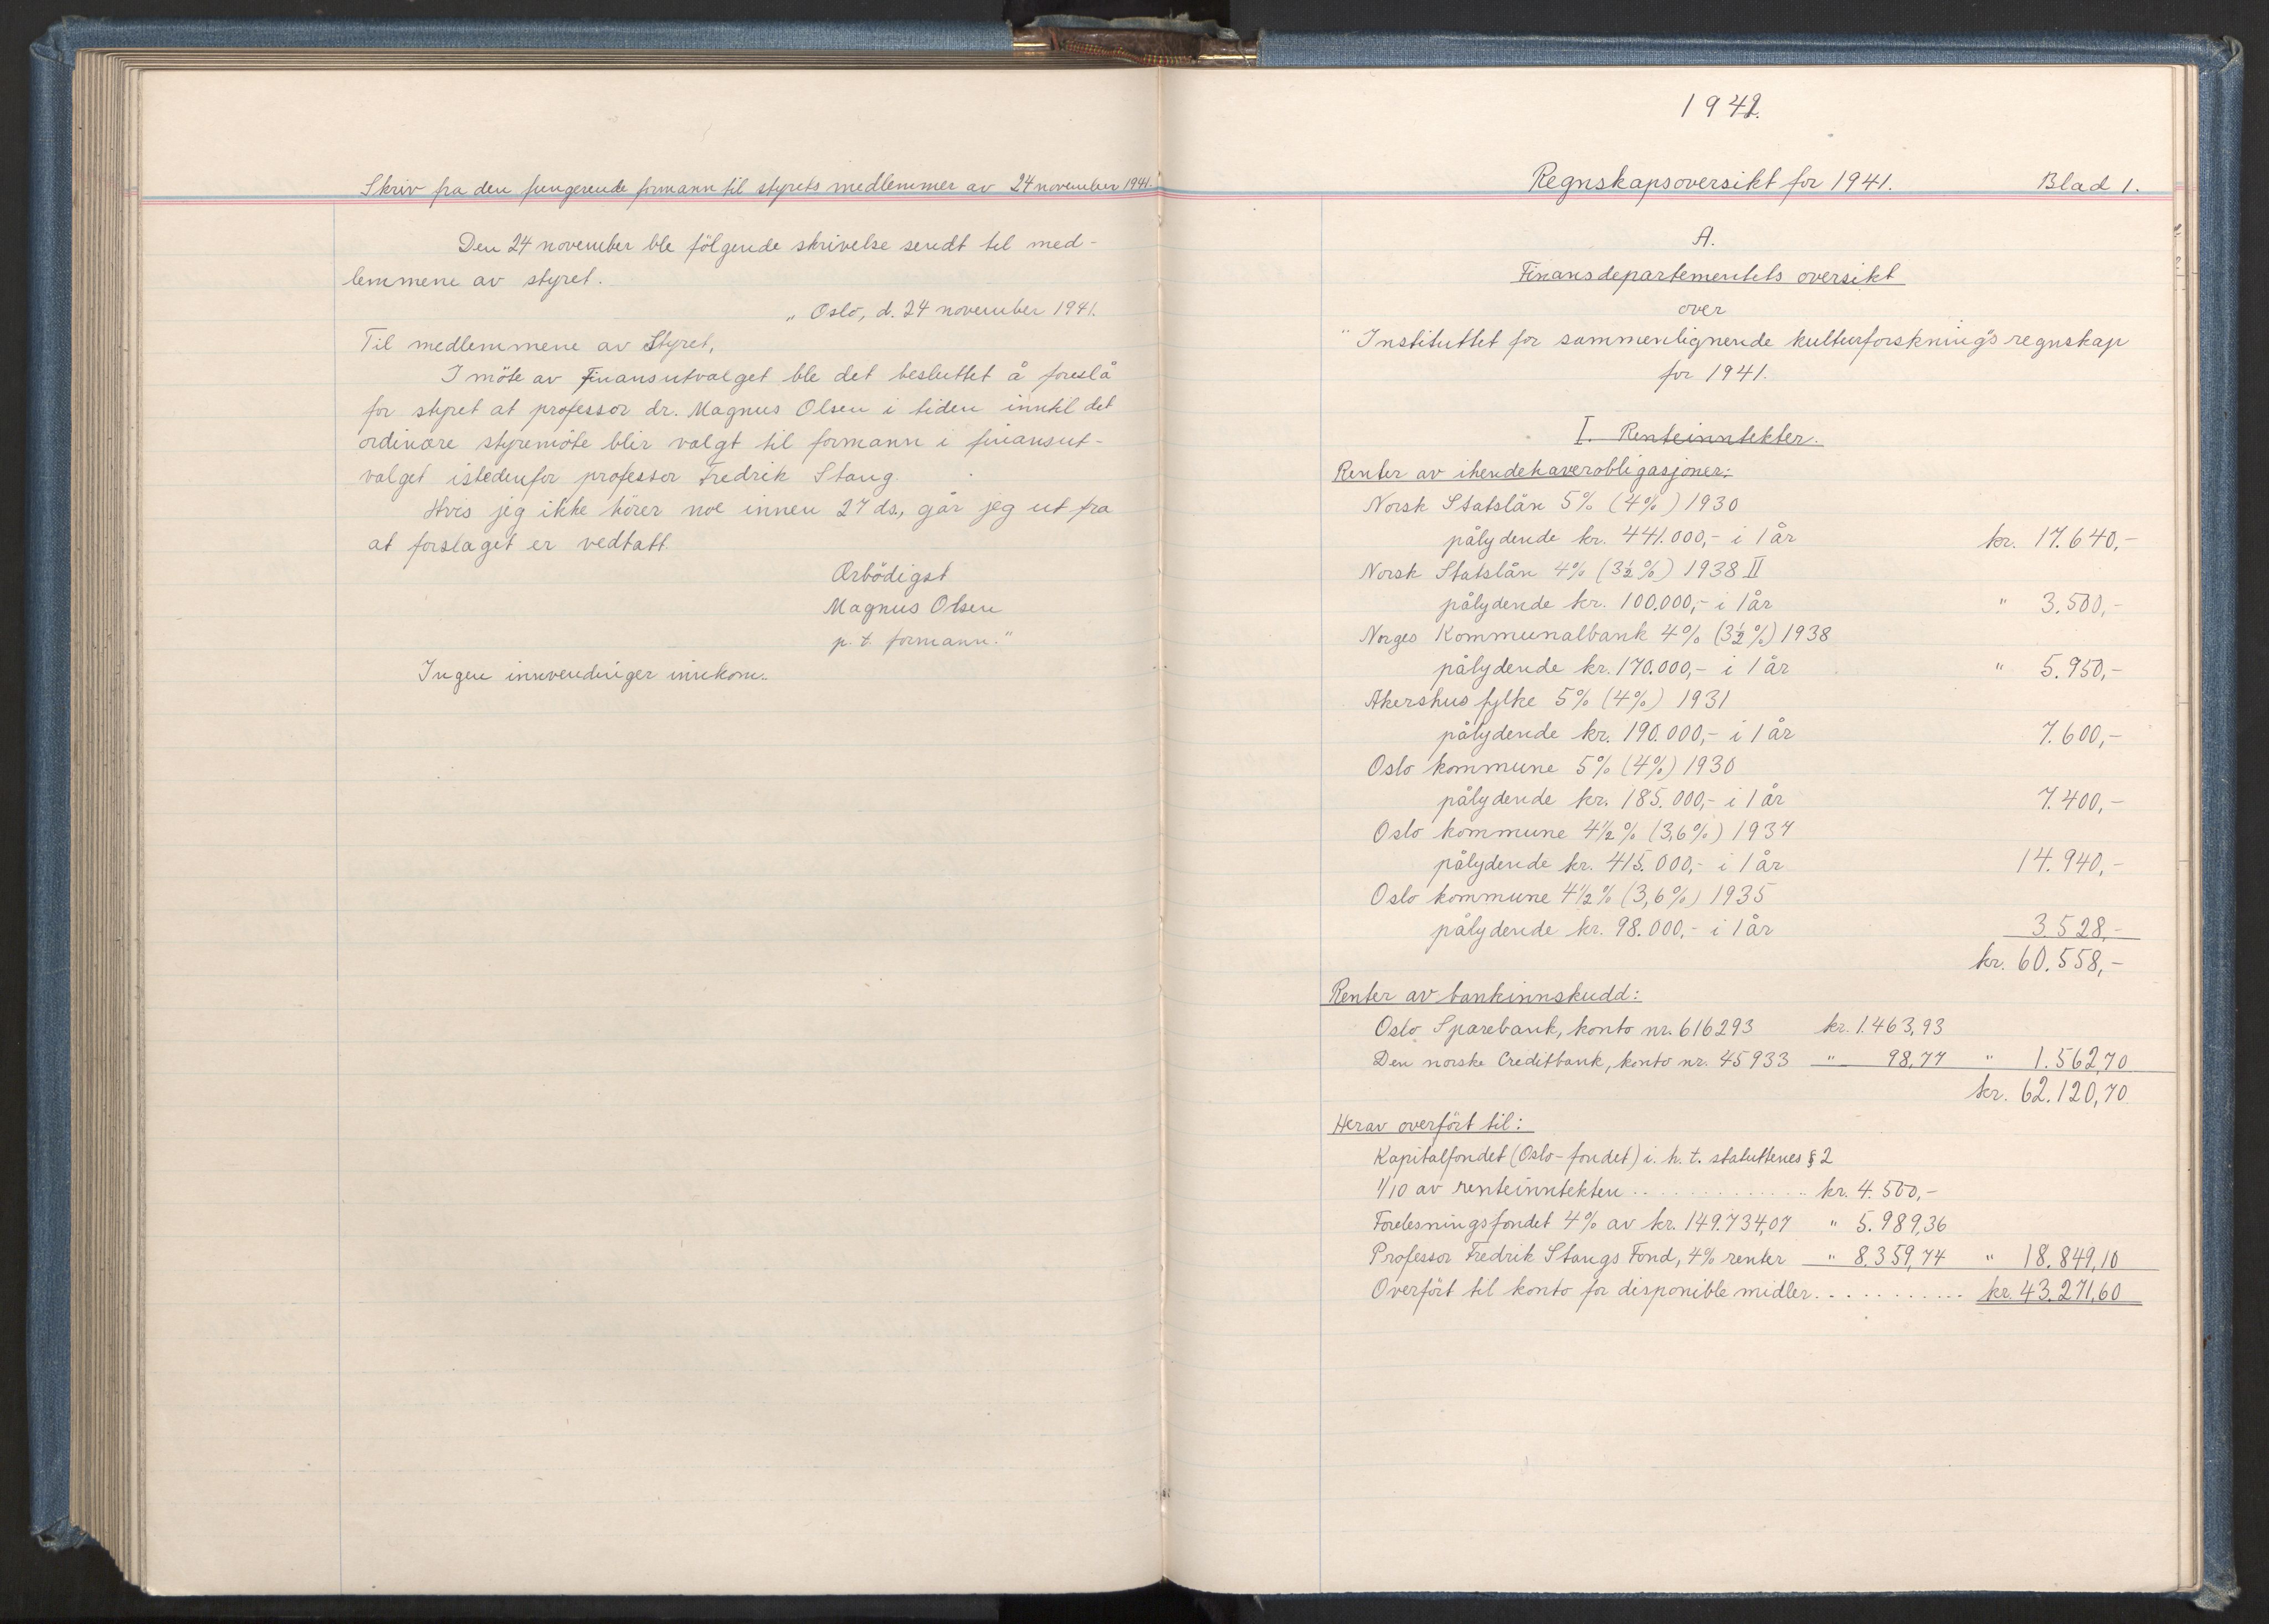 Skriv fra den fungerende formann til styrets medlemmer av 24 november 1941.
Den 24 november ble fölgende skrivelse sendt til med-
lemmene av styret.
„ Oslo, d. 24 november 1941.
Til medlemmene av Styret,
I möte av Finansutvalget ble det besluttet å foreslå
for styret at professor dr. Magnus Olsen i tiden inntil det
ordinære styremöte blir valgt til formann i finansut-
valget istedenfor professor Fredrik Stang.
Hvis jeg ikke hörer noe innen 27 ds., går jeg ut fra
at forslaget er vedtatt
Ærbödigst
Magnus Olsen
p. t. formann."
Ingen innvendinger innkom.
1942.
Regnskapsoversikt for 1941. Blad 1.
A.
Finansdepartementets oversikt
over
"Instituttet for sammenlignende kulturforskning"s regnskap
for 1941.
I. Renteinntekter.
Renter av ihendehaverobligasjoner:
Norsk Statslån 5% (4%) 1930
pålydende kr. 441.000,- i 1 år kr. 17.640,-
Norsk Statslån 4% (3½%) 1938 II
pålydende kr. 100.000,- i 1 år " 3.500,-
Norges Kommunalbank 4% (3½%) 1938
pålydende kr. 170.000,- i 1 år " 5.950,-
Akershus fylke 5% (4%) 1931
pålydende kr. 190.000,- i 1 år 7.600,-
Oslo kommune 5% (4%) 1930
pålydende kr. 185.000,- i 1 år 7.400,-
Oslo kommune 4½% (3,6%) 1934
pålydende kr. 415.000,- i 1 år 14.940,-
Oslo kommune 4½% (3,6%) 1935
pålydende kr. 98.000,- i 1 år 3.528,-
kr. 60.558,-
Renter av bankinnskudd:
Oslo Sparebank, konto nr. 616293 kr. 1.463,93
Den norske Creditbank, konto nr. 45933 " 98,77 " 1.562,70
kr. 62.120,70
Herav overfört til:
Kapitalfondet (Oslo-fondet) i. h. t. statuttenes § 2
1/10 av renteinntekten . . . . . . . . . . . . . . kr. 4.500,-
Forelesningsfondet 4% av kr. 149.734,07 " 5.989,36
Professor Fredrik Stangs Fond, 4% renter " 8.359,74 " 18.849,10
Overfört til konto for disponible midler. . . . . . . . . . . kr. 43.271,60